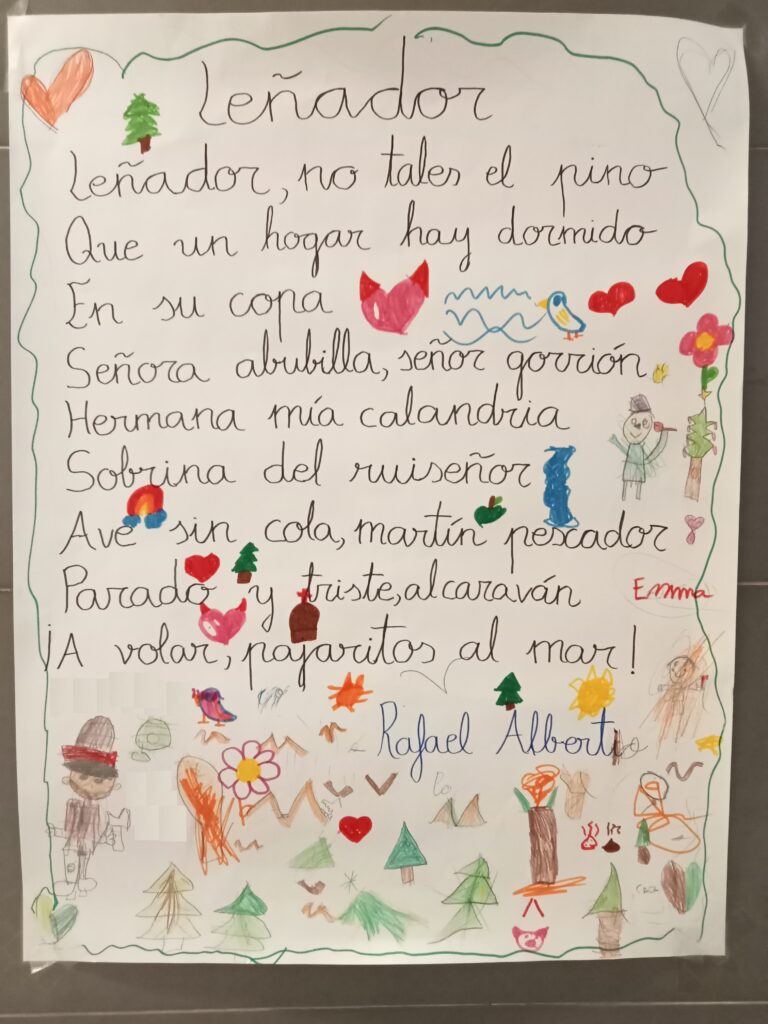 Leñador
Leñador, no tales el pino
Que un hogar hay dormido
En su copa
Señora abubilla, señor gorrión
Hermana mía calandria
Sobrina del ruiseñor
Ave sin cola, martín pescador
Parado y triste, alcaraván
Emma
¡A volar, pajaritos al mar!
Rafael Alberti
CACA